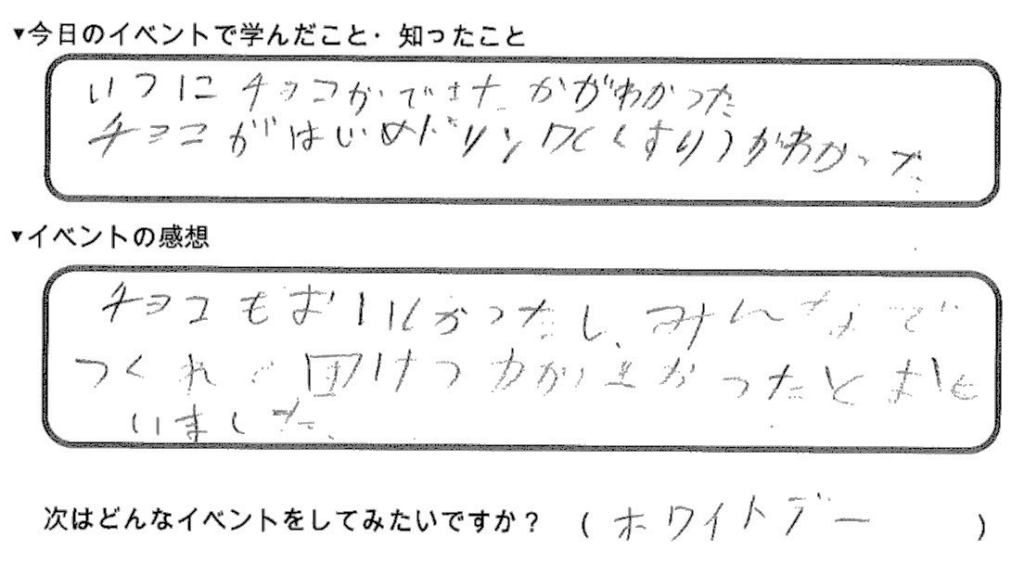 ▼今日のイベントで学んだこと・知ったこと
いつにチョコができたかがわかった
チョコがはじめドリンク(くすり)がわかった
▼イベントの感想
チョコもおいしかったし、みんなで
つくれて団けつ力がよかったとおも
いました。
次はどんなイベントをしてみたいですか?(ホワイトデー)